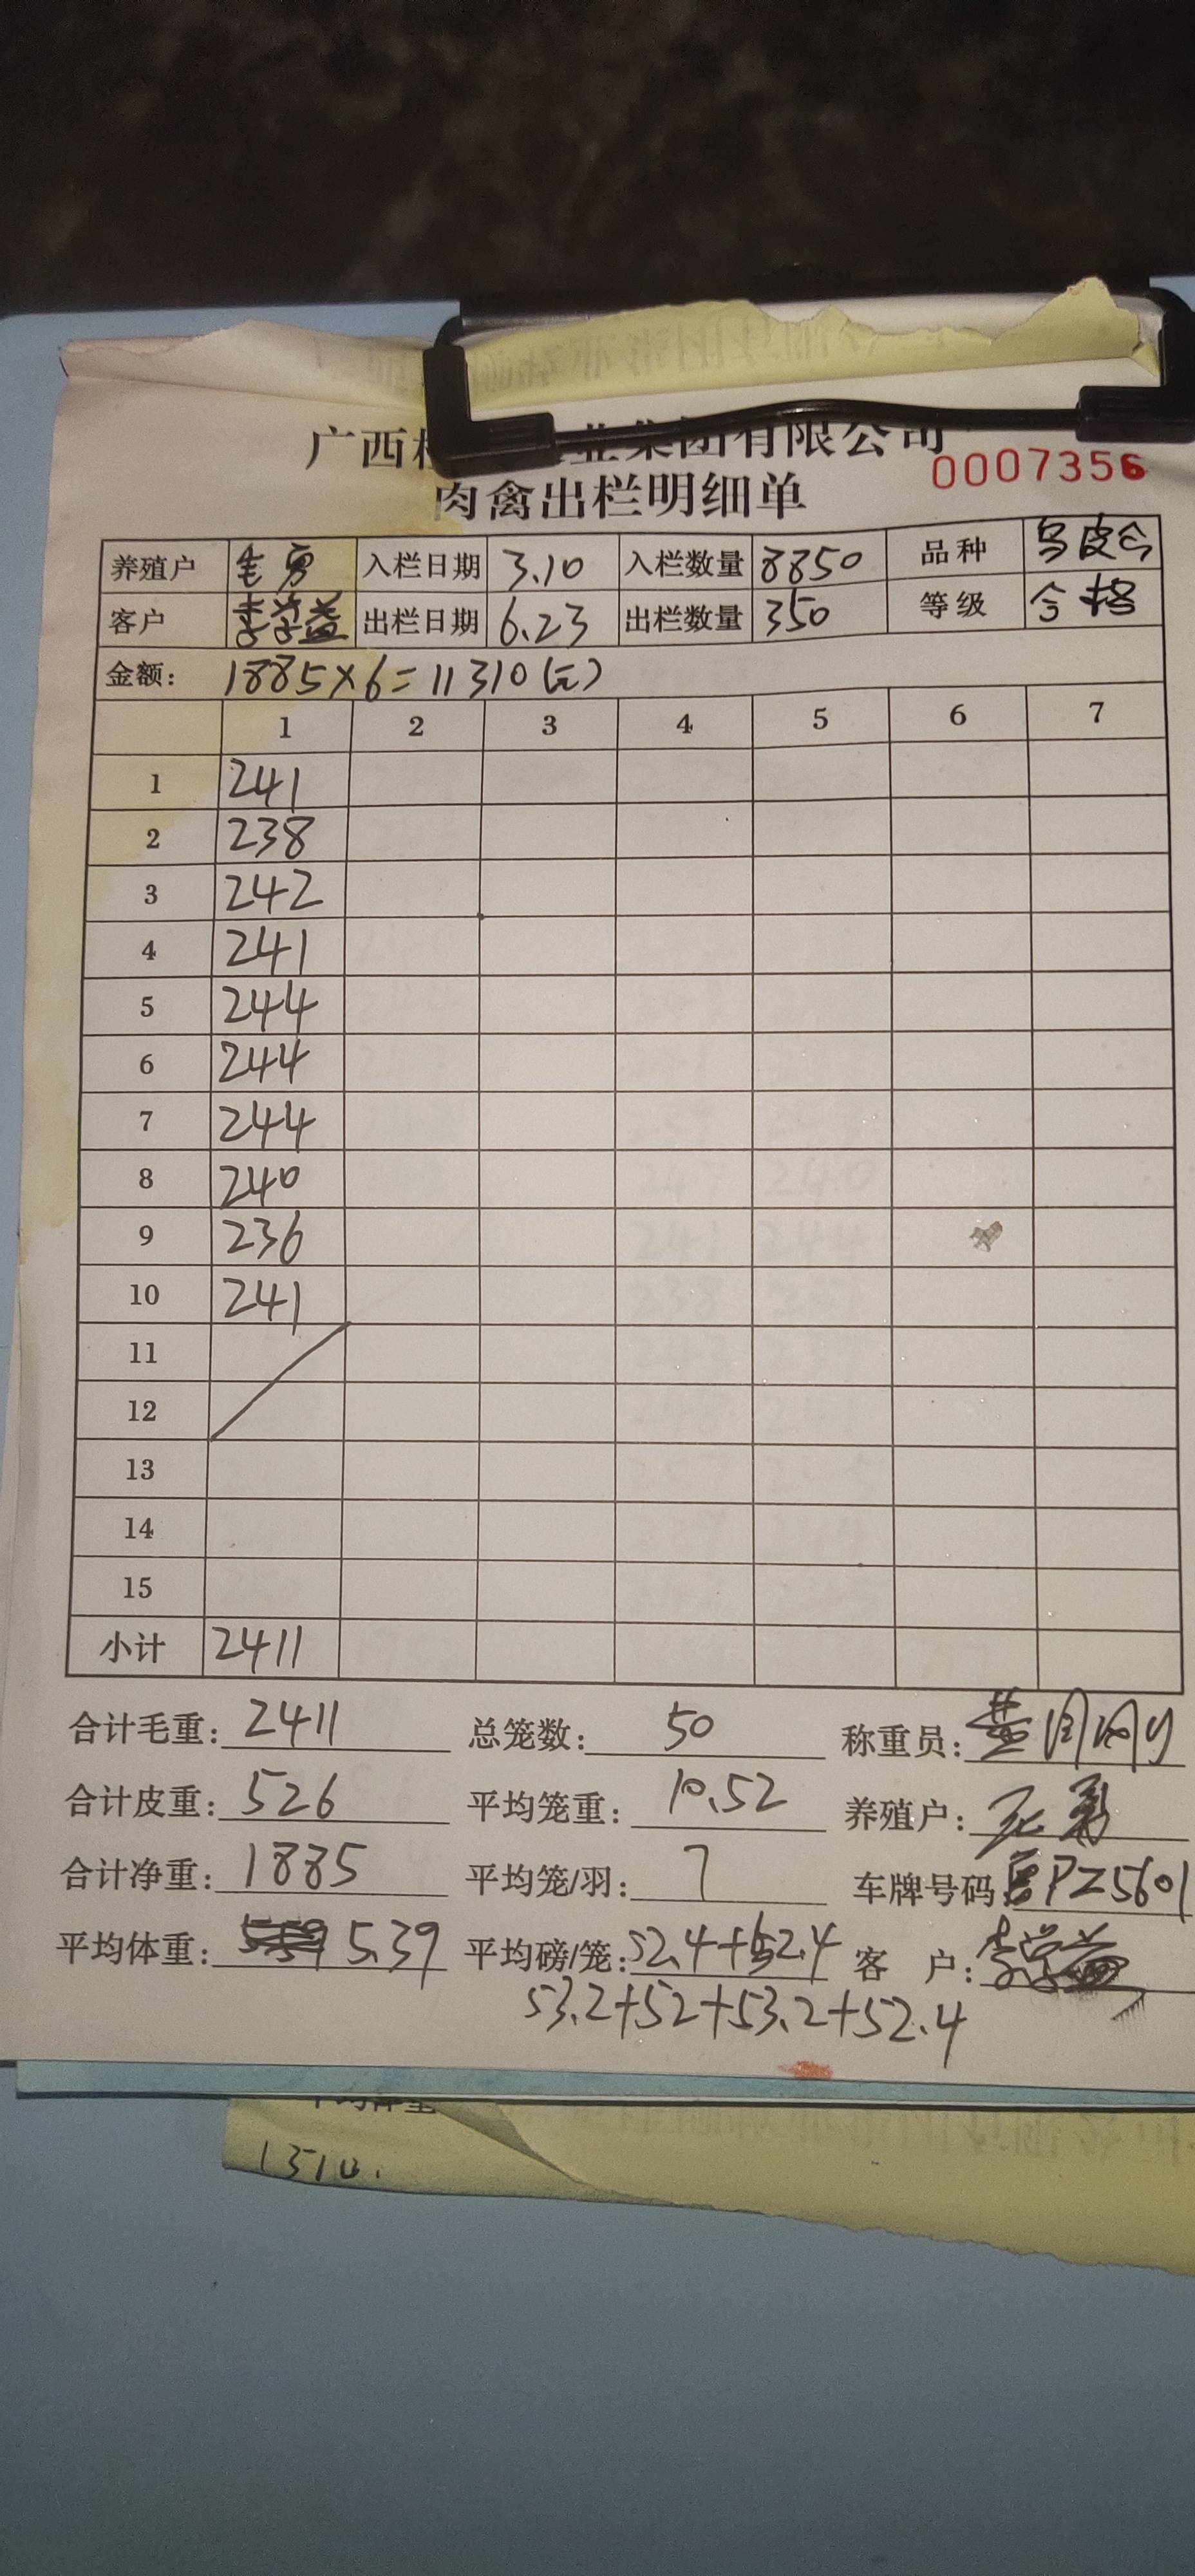 广西 业集团有限公司
0007356
肉禽出栏明细单
养殖户 入栏日期 3.10 入栏数量 8850 品种 乌皮
客户 李学益 出栏日期 6.23 出栏数量 350 等级 合格
金额: 1885×6=11310(元)
1 2 3 4 5 6 7
1 241
2 238
3 242
4 241
5 244
6 244
7 244
8 240
9 236
10 241
11
12
13
14
15
小计 2411
合计毛重: 2411 总笼数: 50 称重员: 黄
合计皮重: 526 平均笼重: 10.52 养殖户:
合计净重: 1885 平均笼/羽: 7 车牌号码 PZ5601
平均体重: 5.39 平均磅/笼: 52.4+52.4 客户: 李学益
53.2+52+53.2+52.4
平均体重